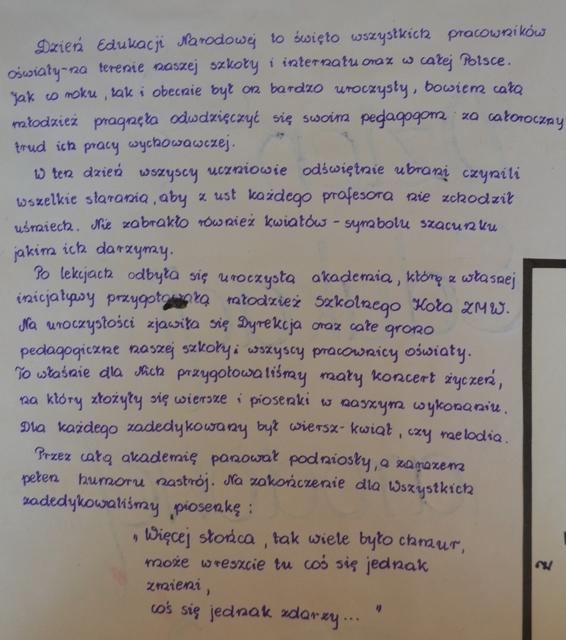 Dzień Edukacji Narodowej to święto wszystkich pracowników
oświaty-na terenie naszej szkoły i internatu oraz w całej Polsce.
Jak co roku, tak i obecnie był on bardzo uroczysty, bowiem cała
młodzież pragnęła odwdzięczyć się swoim pedagogom za całoroczny
trud ich pracy wychowawczej.
W ten dzień wszyscy uczniowie odświętnie ubrani czynili
wszelkie starania, aby z ust każdego profesora nie schodził
uśmiech. Nie zabrakło również kwiatów - symbolu szacunku
jakim ich darzymy.
Po lekcjach odbyła się uroczysta akademia, którę z własnej
inicjatywy przygotowała młodzież Szkolnego Koła ZMW.
Na uroczystości zjawiła się Dyrekcja oraz całe grono
pedagogiczne naszej szkoły i wszyscy pracownicy oświaty.
To właśnie dla Nich przygotowaliśmy mały koncert życzeń,
na który złożyły się wiersze i piosenki w naszym wykonaniu.
Dla każdego zadedykowany był wiersz- kwiat, czy melodia.
Przez całą akademię panował podniosły, a zarazem
pełen humoru nastrój. Na zakończenie dla Wszystkich
zadedykowaliśmy piosenkę :
„ Więcej słońca, tak wiele było chmur,
może wreszcie tu coś się jednak
zmieni,
coś się jednak zdarzy... "